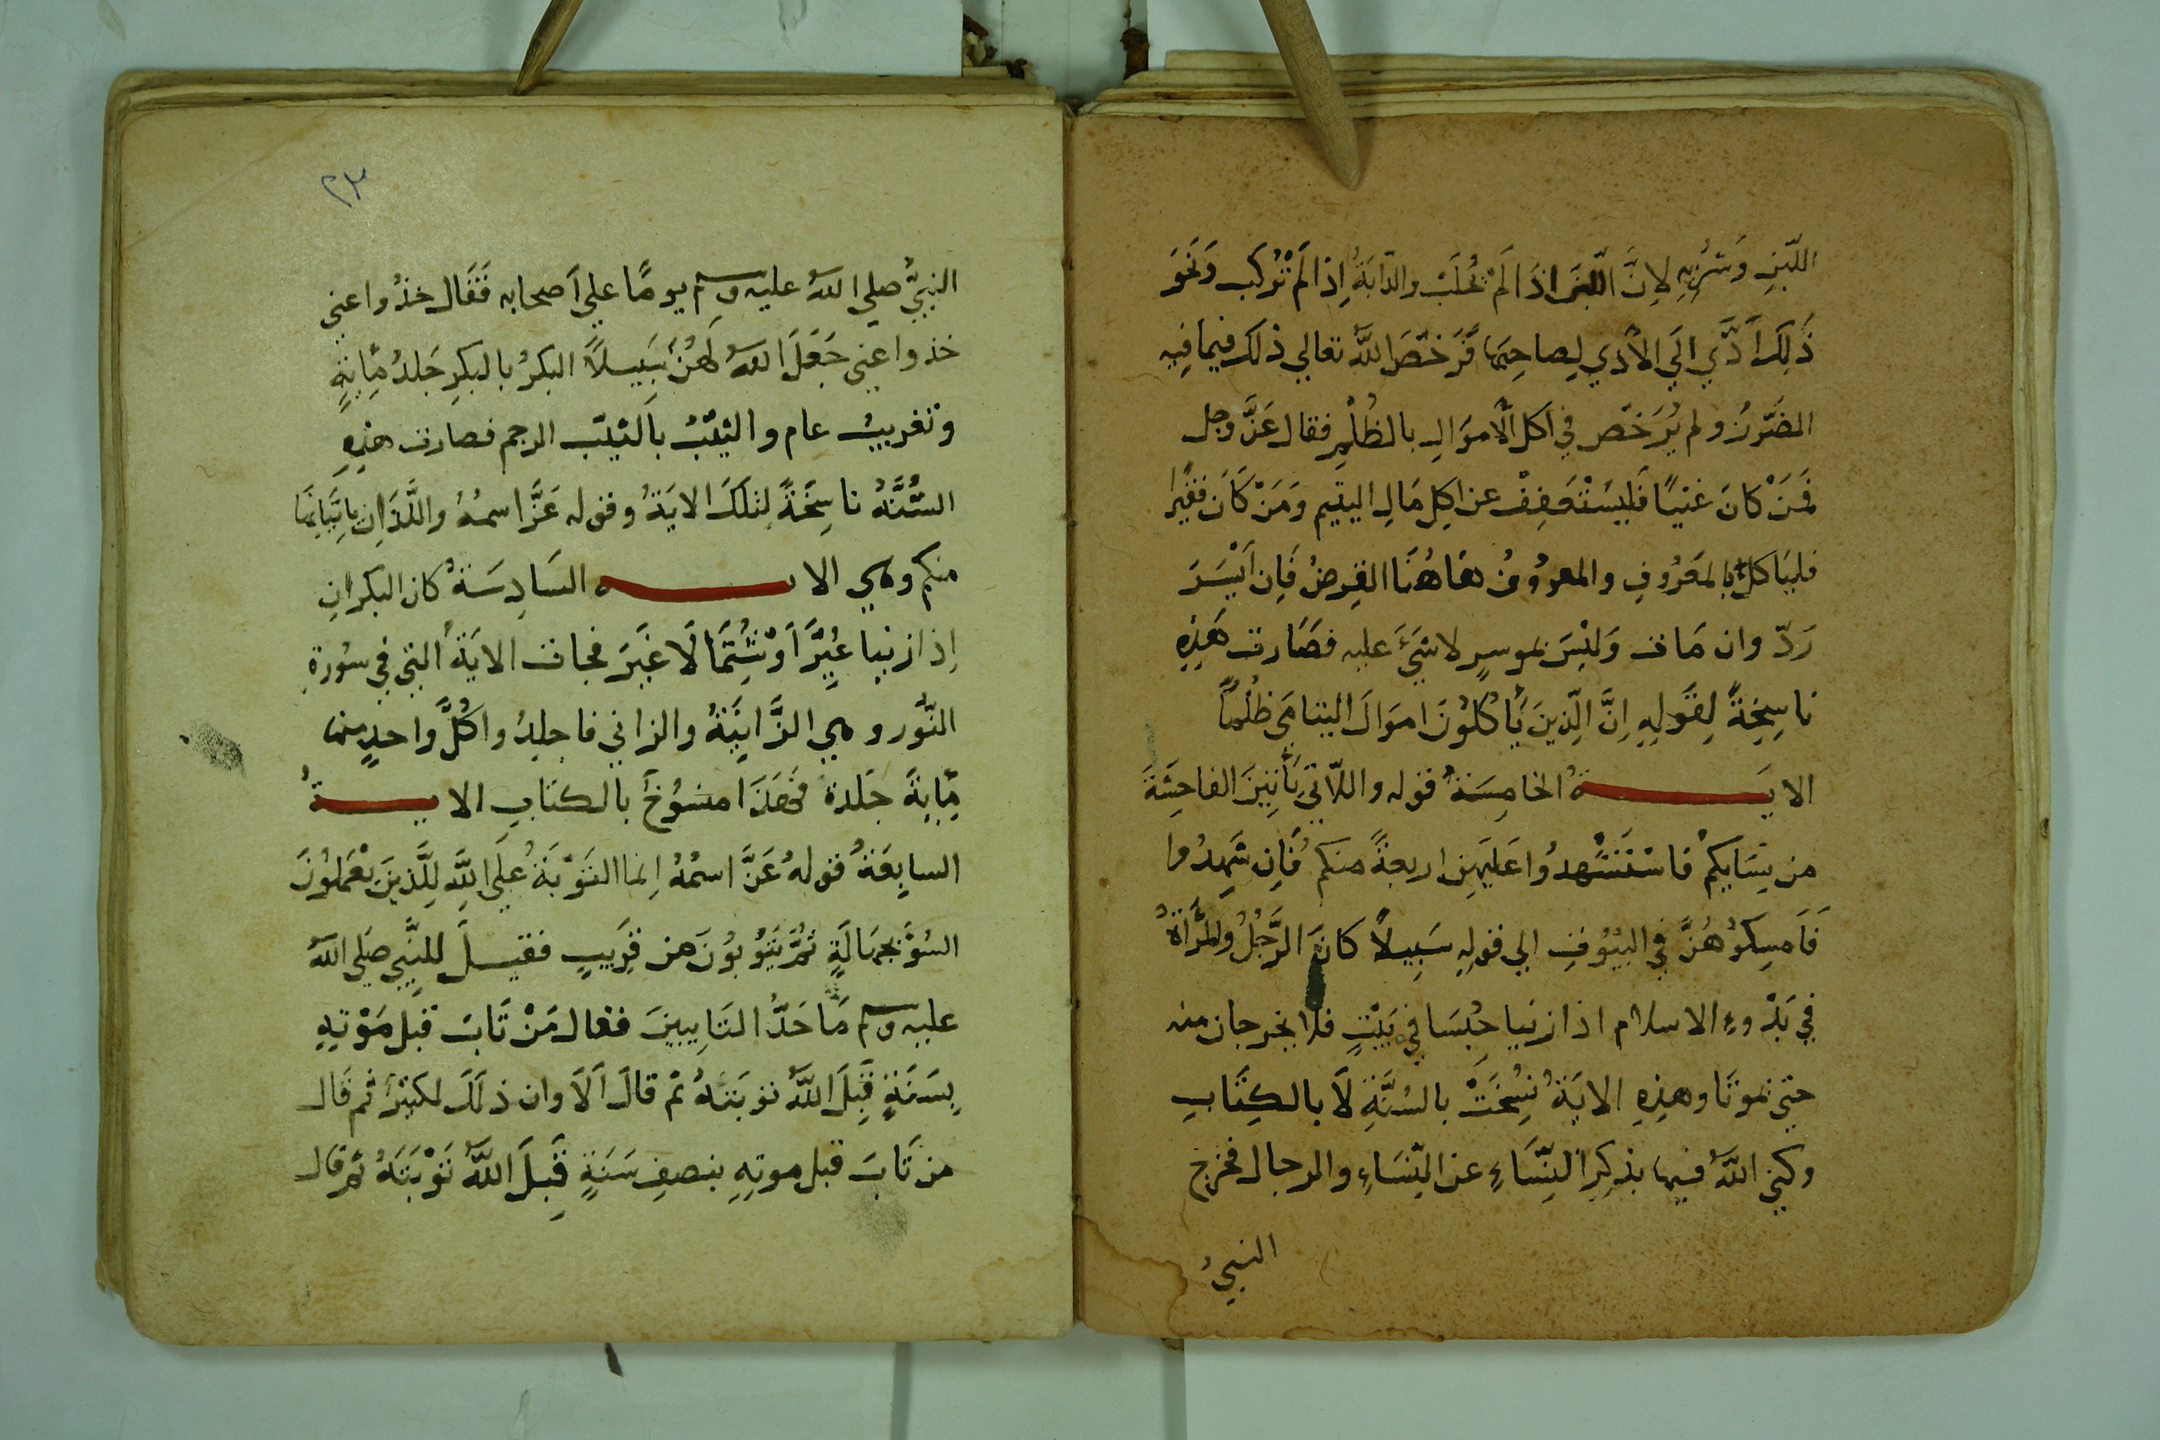 اللّبَنِ وَشُرْبِهِ لاِنَّ اللّبَنَ اذَا لَمْ يُحْلَبْ والدّابَةُ اِذا لَمْ تُركَب وَنَحوَ
ذَلِكَ اَدَّي الَي الأَدي لِصاحِبِهَا فَرَخَّصَ اللَّهُ تعالي ذلك فيمَا فِيهِ
الضَّرَرُ ولم يُرَخّص في اكل الأَموَالِ بالظُلْمِ فقال عَزَّ وجل
فَمَنْ كانَ غَنيّاً فَليَسْتَعفِفْ عن اكِل مَالِ اليَتيم وَمَنْ كَانَ فَقيًرا
فليَاكل بالمَعْرُوفِ والمعروُفُ هَاهُنَا القَرضُ فَإِن اَيْسَرَ
رَدّ وان مَات وَليْسَ بموسِرٍ لا شَيَّ عَليه فصَارت هَذِهِ
ناسِخِةً لِقَولِهِ اِنَّ الّذينَ يَأكُلوُنَ اموَالَ اليَتامَي ظُلماً
الايَــــــةُ الخامِسَةُ قوله واللاّتِي يَأتينَ الفاحِشَةَ
من نِسَايكمْ فاسْتَشْهِدُوا عَليَهِن اربعةً منكم فَإِن شَهِدُوا
فَامسِكوُهُنَّ في البيُوُتِ الي قولِهِ سَبِيلاً كانَ الرَّجُلُ والمَرْأَةُ
في بَدْوءِ الاسلام اذا زنيا حُبِسَا في بَيْتٍ فلا يخرجان منه
حتي يموتَا وهذِهِ الايَةُ نُسِخَتْ بالسُنَّةِ لاَ بالكِتَابِ
وكني اللَّهُ فيها بذكِرِ النِّسَاءِ عن النِّسَاءِ والرجال فخرج
النبيُّ
٢٣
النبيُّ صلي اللهُ عليه وسلم يومًا علي اَصحابه فَقَال خذُوا عني
خذوا عني جَعَلَ اللهُ لَهُنَّ سَبيلاً البكرُ بالبكرِ جَلدُ مِايَةٍ
وتغريبُ عام والثيّبُ بالثيّب الرجم فصارت هذِهِ
السُّنَّةُ ناسِخَةً لِتلكَ الايَةُ وقوله عَزَّ اسمُهُ واللَّذَانِ يَاتِيَانِهَا
منكم وهي الايــــــه السَادِسَةُ كان البكرانِ
اِذا زنيا عُيِّرَا وَشُتِمَا لاَ غَيرَ فجات الايَةُ التي في سُورةِ
النُّور وهي الزَّانِيَةُ والزاني فاجلِدُوا كُلَّ واحدٍ منهما
مِايةَ جَلدة فهَذَا منسُوُخٌ بالكتَابِ الايــــــةُ
السابِعَةُ قولهُ عَزَّ اسمُهُ اِنما التَوْبَةُ علَي اللَّهِ لِلَّذينَ يَعْمَلوُنَ
السُوَّ بجهَالَةٍ ثمَّ يَتوُبوُنَ من قرَيبٍ فقيل للنَّبِي صَلي اللهُ
عليه وسلم مَا حَدُّ التَايبينَ فقال مَنْ تَابَ قبل مَوْتِهِ
بِسَنَةٍ قَبِلَ اللَّهُ توبَتهُ ثم قالَ اَلاَ وان ذلَكَ لكثيَر ثم قال
من تَابَ قبل موتِهِ بنصفِ سَنَةٍ قَبِلَ اللَّهُ تَوْبَتَهُ ثم قال